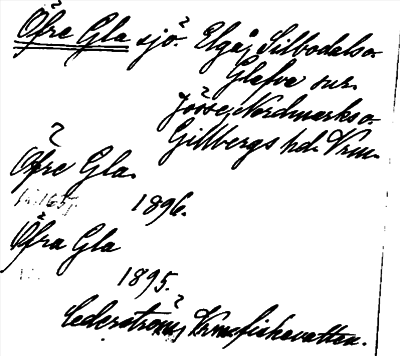 Öfre Gla sjö. Elgå, Silbodals o.
Glafva snr.
Jösse, Nordmarks o.
Gillbergs hd. Vrm.
Öfre Gla.
1896.
Öfra Gla
1895.
Cederström, Vrms fiskevatten.